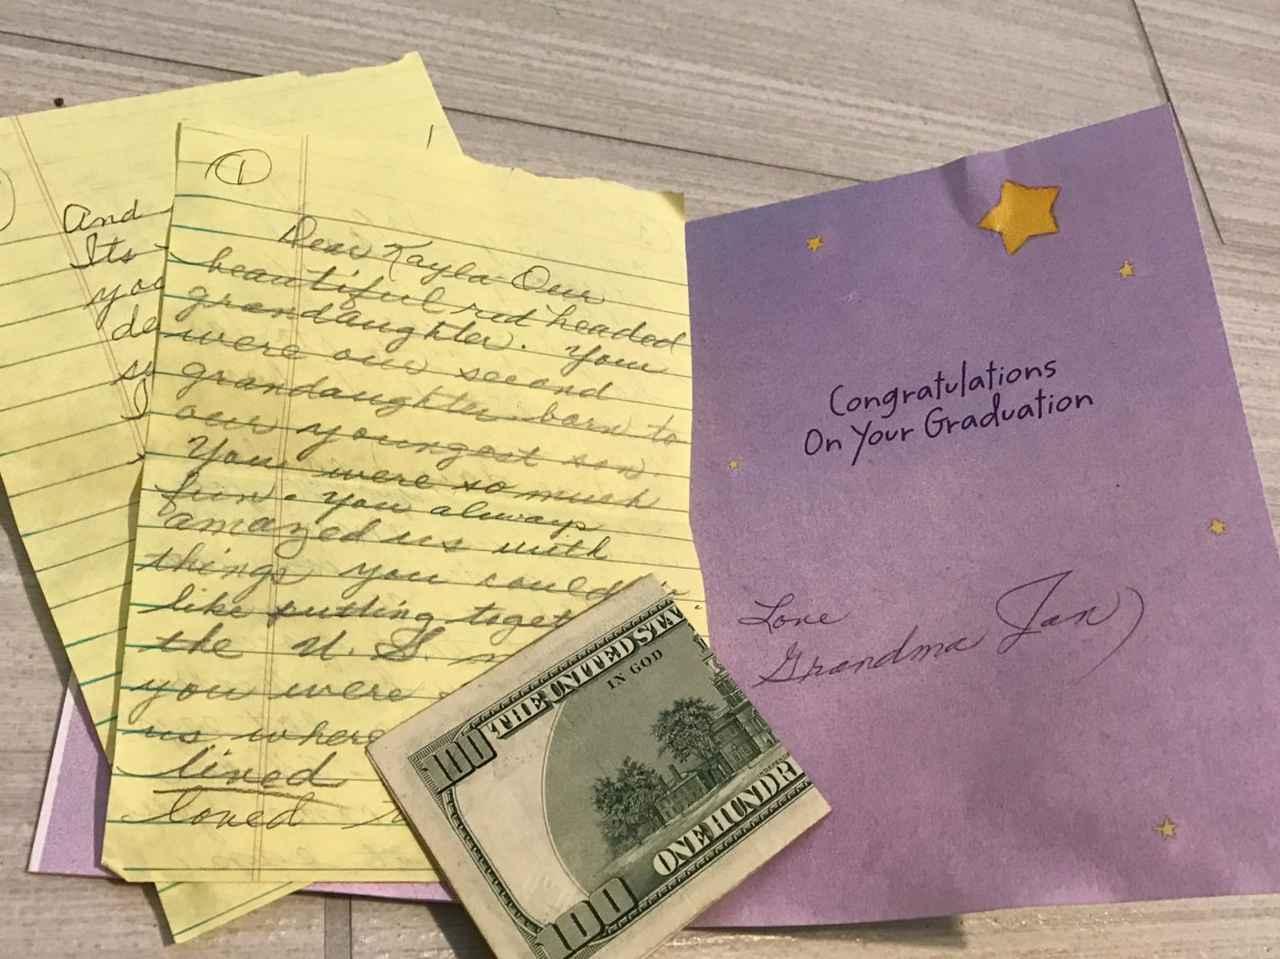 And
Its
you
de
su
1
Dear Kayla Our
beautiful red headed
grandaughter. You
were our second
grandaughter born to
our youngest son
You were so much
fun. You always
amazed us with
things you could
like putting toget
the U.S.
you were
us where
lived
loved
Congratulations
On Your Graduation
Love
Grandma Jan
THE UNITED STA
IN GOD
100
ONE HUNDR
100